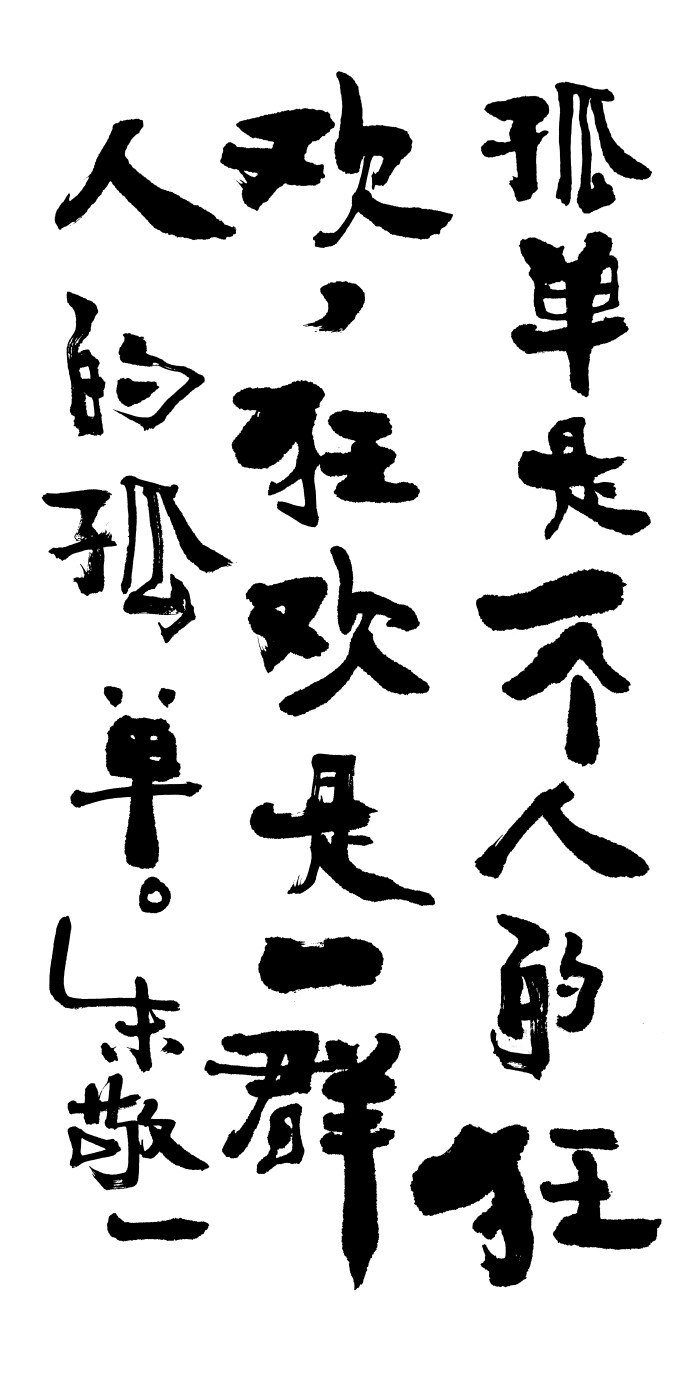 孤单是一个人的狂
欢，狂欢是一群
人的孤单。朱敬一